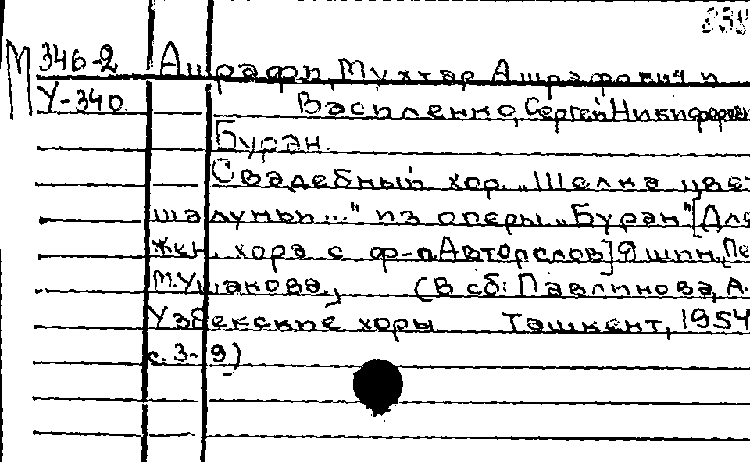 М 346-2 Ашрафи, Мухтар Ашрафович и
У-340 Василенко, Сергей Никифорович
Буран.
Свадебный хор „Шелка цвет
шалуньи..." из оперы „Буран" [Для
жен. хора с ф-п. Автор слов] Яшин, [Пе
М. Ушакова., (В сб: Павлинова, А.
Узбекские хоры Ташкент, 1954
с. 3-9)